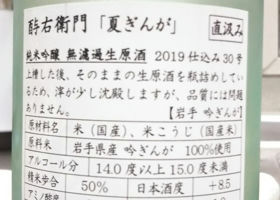 酉与右衛門「夏ぎんが」 直汲み
純米吟醸 無濾過生原酒 2019仕込み30号
上槽した後、そのままの生原酒を瓶詰めしている
ため、滓が少し沈殿しますが、品質には問題
ありません。 【岩手 吟ぎんが】
原材料名 米(国産)、米こうじ(国産米)
原料米 岩手県産 吟ぎんが 100%使用
アルコール分 14.0度以上15.0度未満
精米歩合 50% 日本酒度 +8.5
アミノ酸度